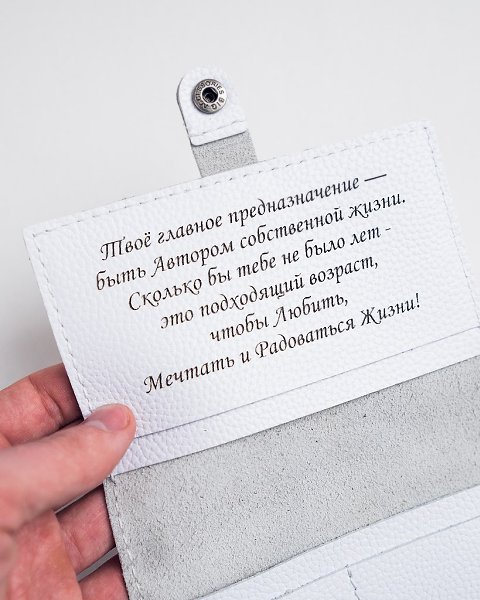 Твоё главное предназначение —
быть Автором собственной жизни.
Сколько бы тебе не было лет -
это подходящий возраст,
чтобы Любить,
Мечтать и Радоваться Жизни!